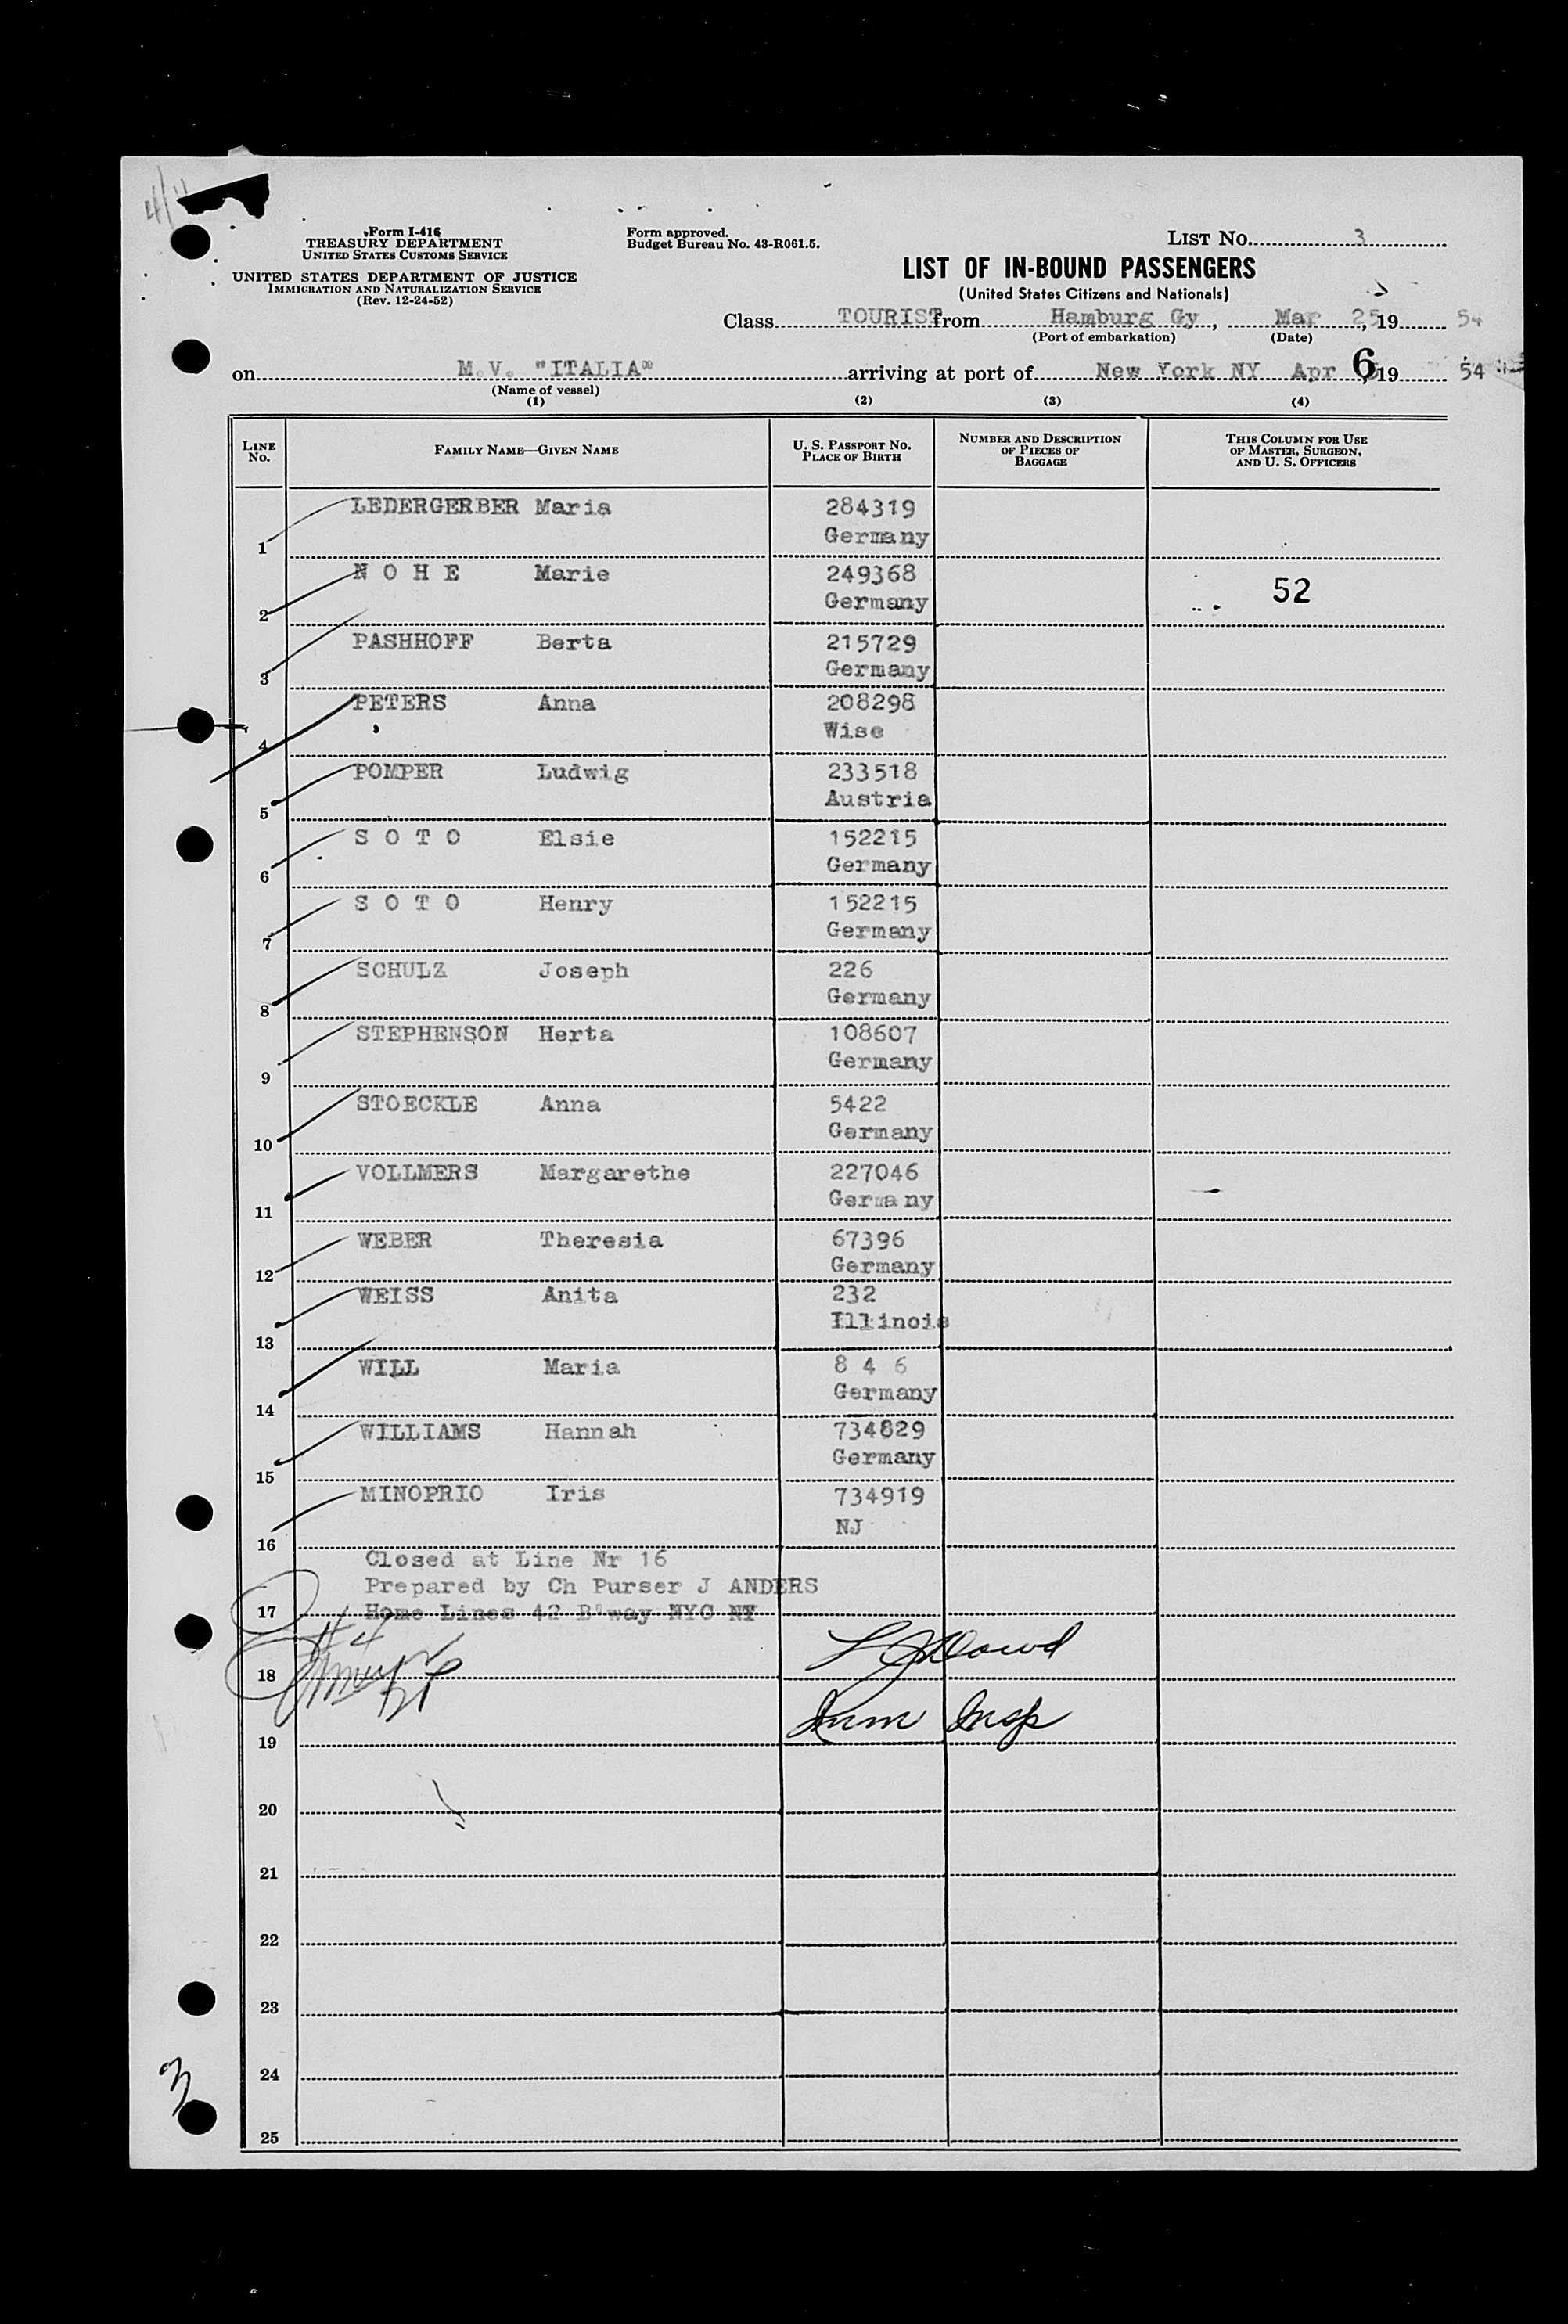 Form I-416
TREASURY DEPARTMENT
UNITED STATES CUSTOMS SERVICE
UNITED STATES DEPARTMENT OF JUSTICE
IMMIGRATION AND NATURALIZATION SERVICE
(Rev. 12-24-52)
Form approved.
Budget Bureau No. 43-R061.5.
LIST No. 3
LIST OF IN-BOUND PASSENGERS
(United States Citizens and Nationals)
Class TOURIST from Hamburg Gy, Mar 25, 19 54
(Port of embarkation) (Date)
on M.V. "ITALIA" arriving at port of New York NY Apr 6, 19 54
(Name of vessel)
(1) (2) (3) (4)
LINE No. FAMILY NAME—GIVEN NAME U. S. PASSPORT No. PLACE OF BIRTH NUMBER AND DESCRIPTION OF PIECES OF BAGGAGE THIS COLUMN FOR USE OF MASTER, SURGEON, AND U. S. OFFICERS
1 LEDERGERBER Maria 284319
Germany
2 N O H E Marie 249368 52
Germany
3 PASHHOFF Berta 215729
Germany
4 PETERS Anna 208298
Wise
5 POMPER Ludwig 233518
Austria
6 S O T O Elsie 152215
Germany
7 S O T O Henry 152215
Germany
8 SCHULZ Joseph 226
Germany
9 STEPHENSON Herta 108607
Germany
10 STOECKLE Anna 5422
Germany
11 VOLLMERS Margarethe 227046
Germany
12 WEBER Theresia 67396
Germany
13 WEISS Anita 232
Illinois
14 WILL Maria 8 4 6
Germany
15 WILLIAMS Hannah 734829
Germany
16 MINOPRIO Iris 734919
NJ
Closed at Line Nr 16
Prepared by Ch Purser J ANDERS
17 Home Lines 42 B'way NYC NY
18
Imm Insp
19
20
21
22
23
24
25
3